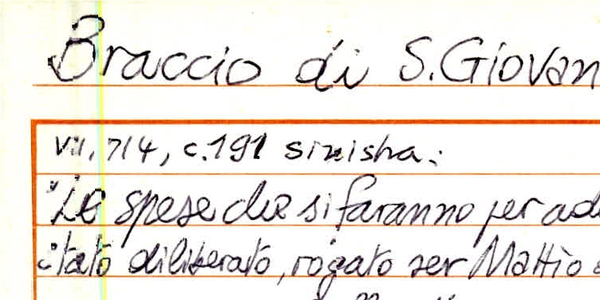 Braccio di S. Giovan
vol. 714, c. 191 sinistra:
"Le spese che si faranno per ad
stato diliberato, rogato ser Mattio